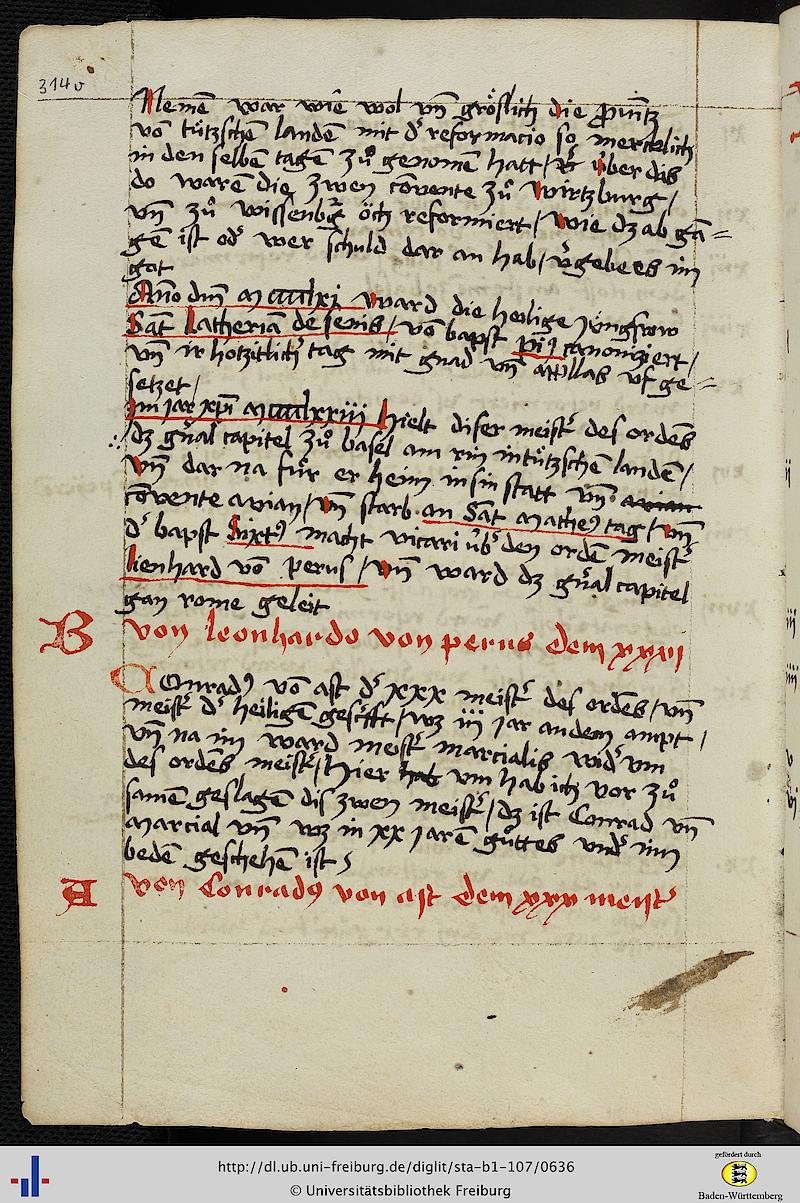 314v
Nemē war wie wol vn̄ grőslich die ꝓuītz
vō tützschē landē mit dˢ reformacio so mercklich
in den selbē tagē zů genomē hatt / über dis
do warē die zwen cōvente zů wirtzburg /
vn̄ zů wissenbḡ öch reformiert / wie dz ab gā=
gē ist odˢ wer schuld dar an hab / vˢgebe es im
got
Anno dn̄i Mcccclxi ward die heilige jungfrow
Sāt katherinā de senis / vō bapst piꝰ canoniziert /
vn̄ ir hotzitlichˢ tag mit gnad vn̄ applas vf ge=
setzet /
Im jar xp̄i Mcccclxxiii hielt diser meistˢ des ordēs
dz gn̄al capitel zů basel am rin in tützschen landē /
vn̄ dar na für er heim in sin statt vn̄ avian
cōvente avian / vn̄ starb an Sāt matheꝰ tag / vn̄
dˢ bapst Sixtꝰ macht vicari übˢ den ordē meistˢ
lienhard vō perus / vn̄ ward dz gn̄al capitel
gan rome geleit
B von leonhardo von perus dem xxxii
Conradꝰ vō ast dˢ xxx meistˢ des ordēs / vn̄
meistˢ dˢ heiligē geschrifft / wz iii jar an dem ampt /
vn̄ na im ward meistˢ marcialis widˢ vm
des ordēs meistˢ / hier hab vm hab ich vor zů
samē geslagē dis zwen meistˢ / dz ist Conrad vn̄
marcial vn̄ wz in xx jarē gůttes vndˢ inn
bedē geschehē ist
A von Conradꝰ von ast dem xxx meistˢ
http://dl.ub.uni-freiburg.de/diglit/sta-b1-107/0636
© Universitätsbibliothek Freiburg
gefördert durch
Baden-Württemberg